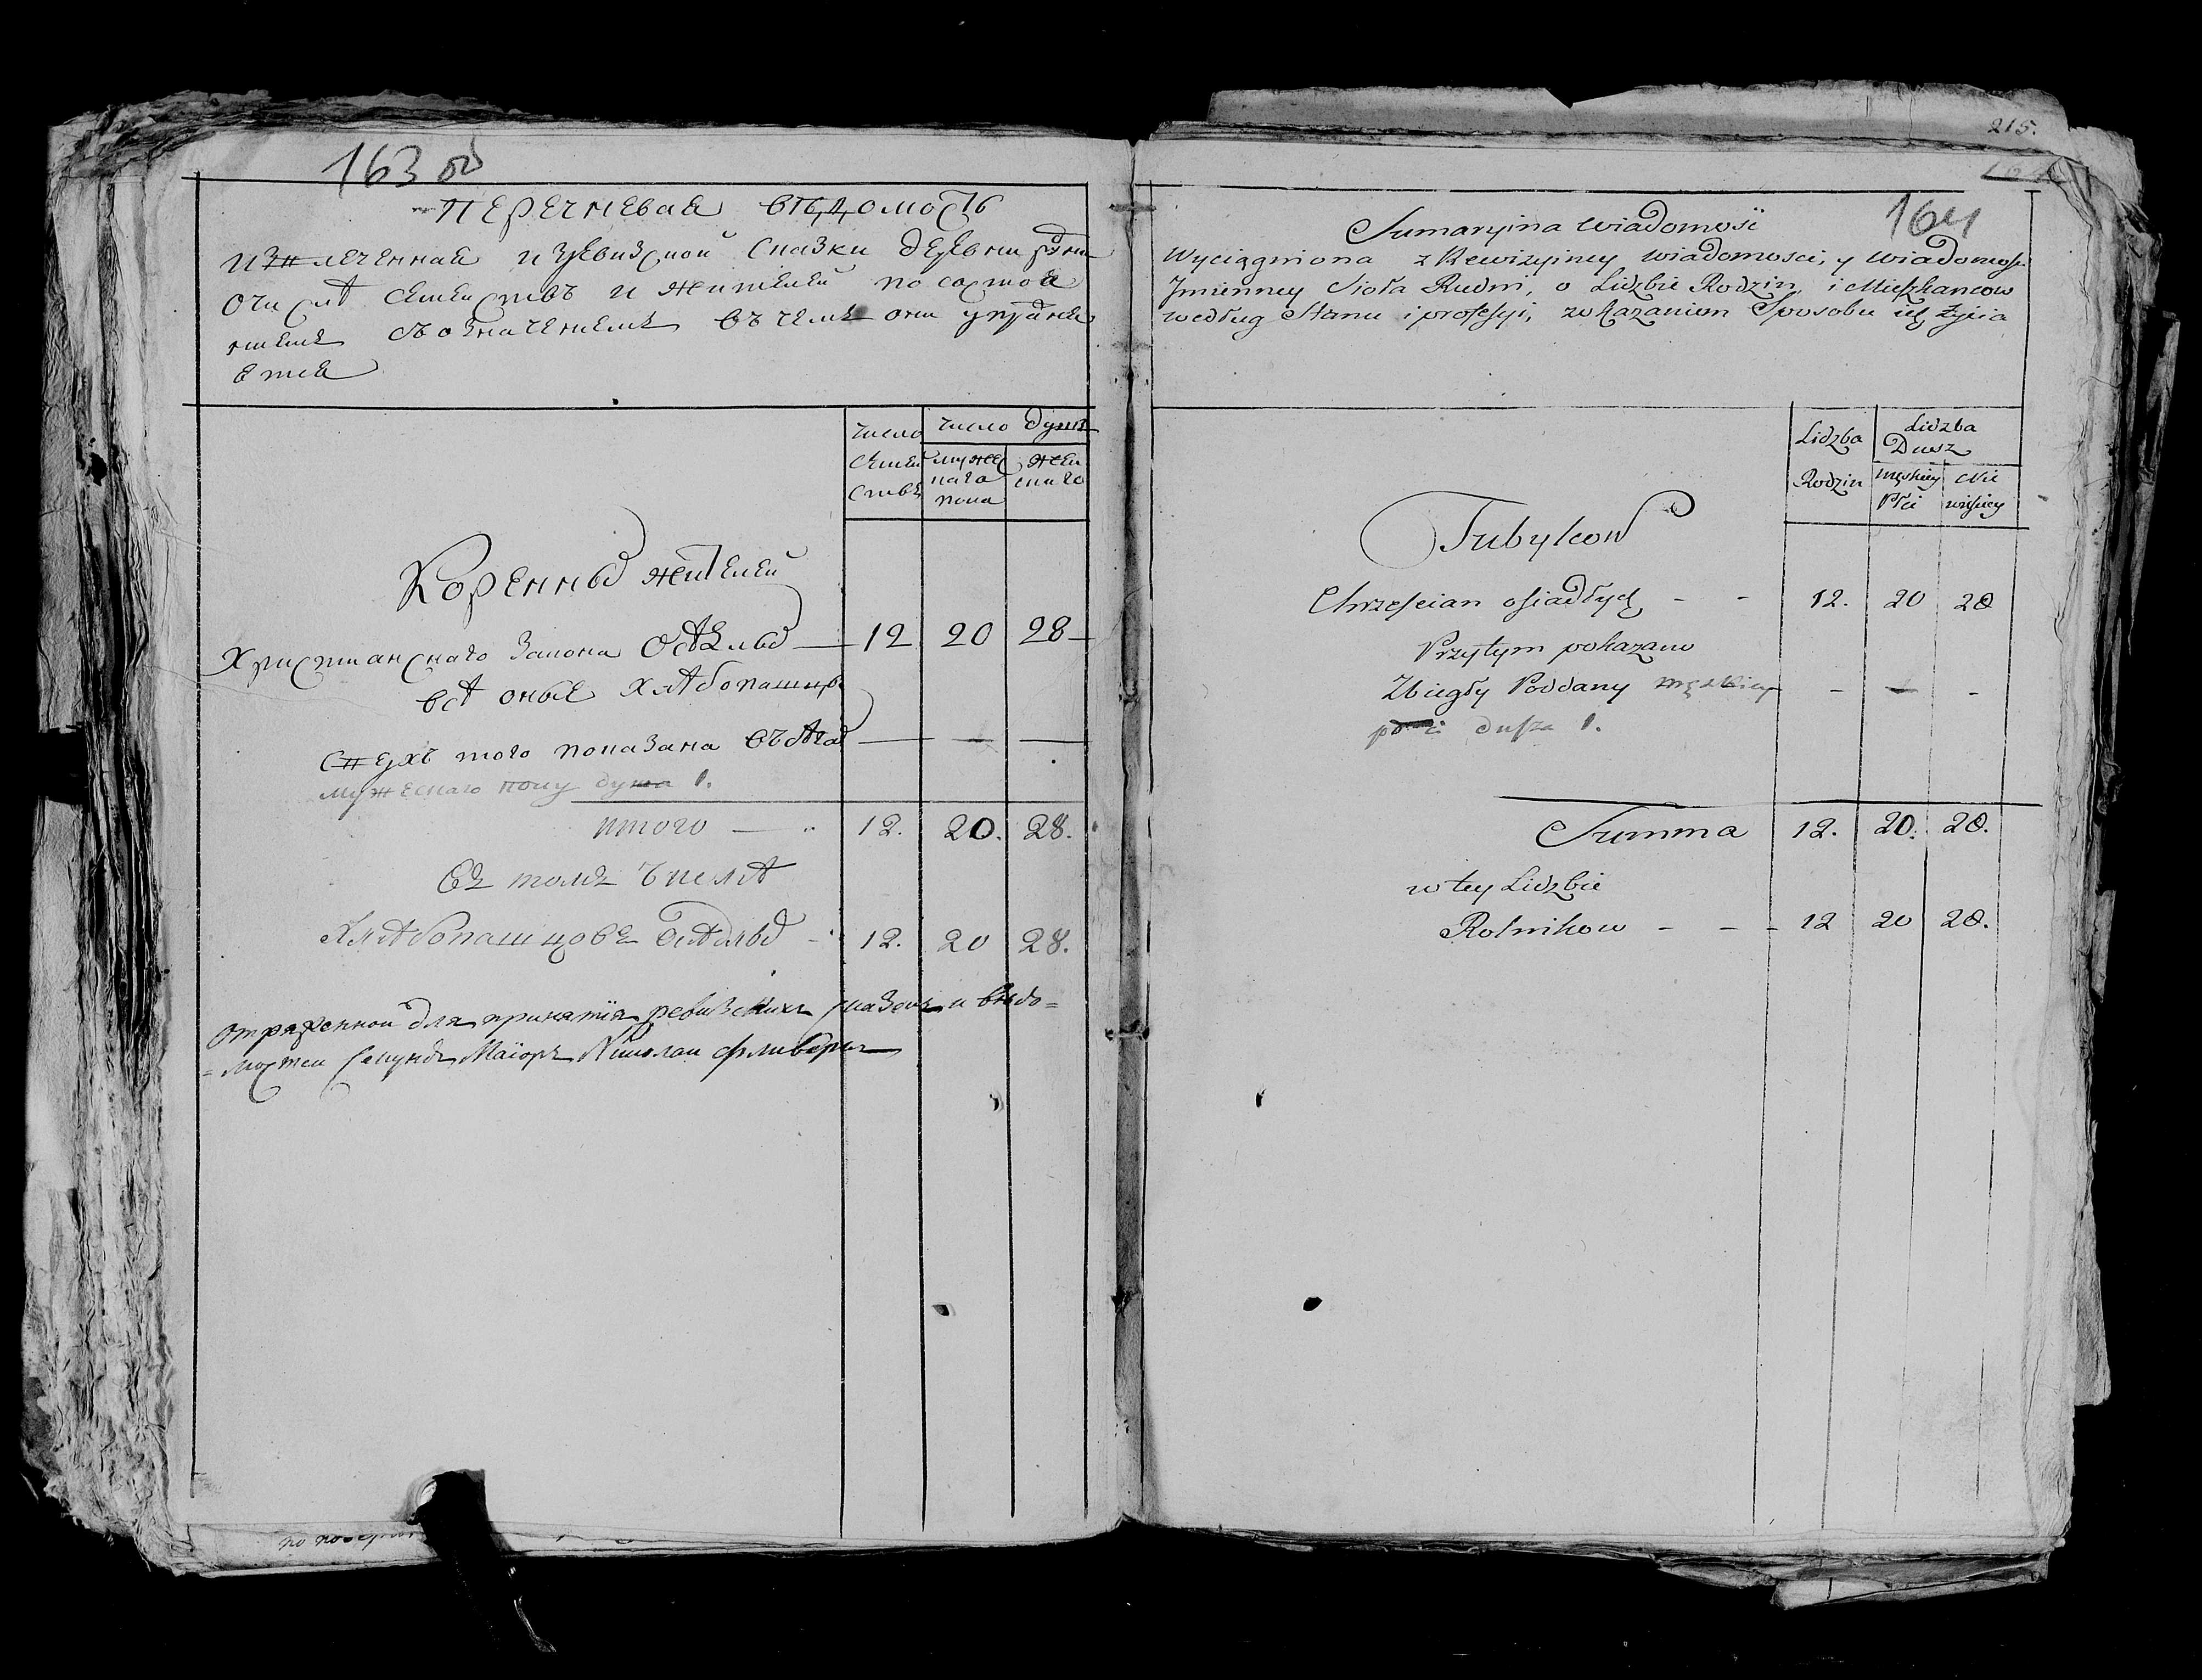 163 об
Перечневая вѣдомость
извлеченная изревизской сказки деревни рудни
очислѣ семействъ и жителей по состоя
ниямъ съозначениемъ въчемъ они упражня
ется
число
семей
ствъ
число душъ
мужес
каго
пола
жен
скаго
Коренныхъ жителей
Христианскаго закона осѣдлыхъ — 12 20 28
всѣ оные хлѣбопашцы
сверхъ того показана въбѣгахъ — — —
мужескаго полу душа 1.
итого — 12. 20. 28.
въ томъ числѣ
Хлѣбопашцовъ осѣдлыхъ - 12. 20 28.
отряженной для принятия ревизскихъ сказокъ и вѣдо=
=мостей секундъ Маiоръ Николай
по повѣрки
215.
164
Sumaryina wiadomość
Wyciągniona z Rewizyiney wiadomosci, y wiadomosci
Jmienney Sioła Rudni, o Lidzbie Rodzin, i Mieszkancow
według Stanu i professyi, zokazaniem Sposobu ich życia
Lidzba
Rodzin
Lidzba
Dusz
męskiey
Płci
Nie
wieściey
Tubylcow
Chrześcian osiadłych - - 12. 20 28
Przytym pokazano
Zbiegły Poddany męskiey - - -
płci dusza 1.
Summa 12. 20. 28.
w tey Lidzbie
Rolnikow - - - 12 20 28.